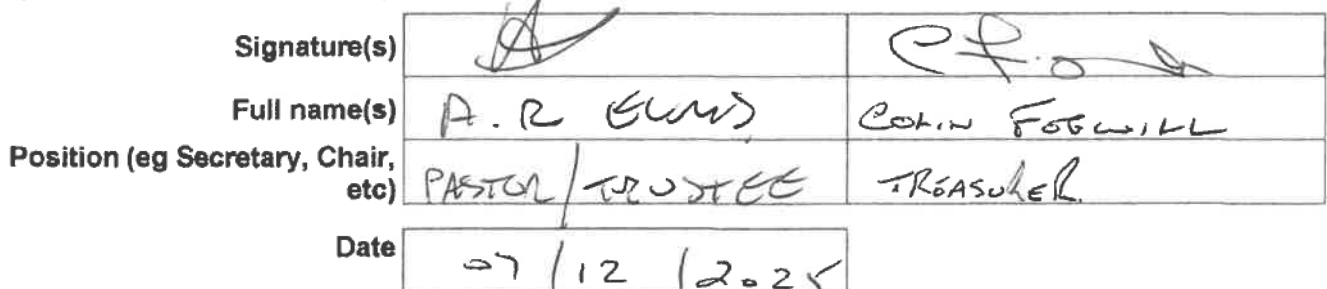 Signature(s)
Full name(s) A. R COLIN FOGWILL
Position (eg Secretary, Chair,
etc) PASTOR/TRUSTEE TREASURER
Date 07/12/2025